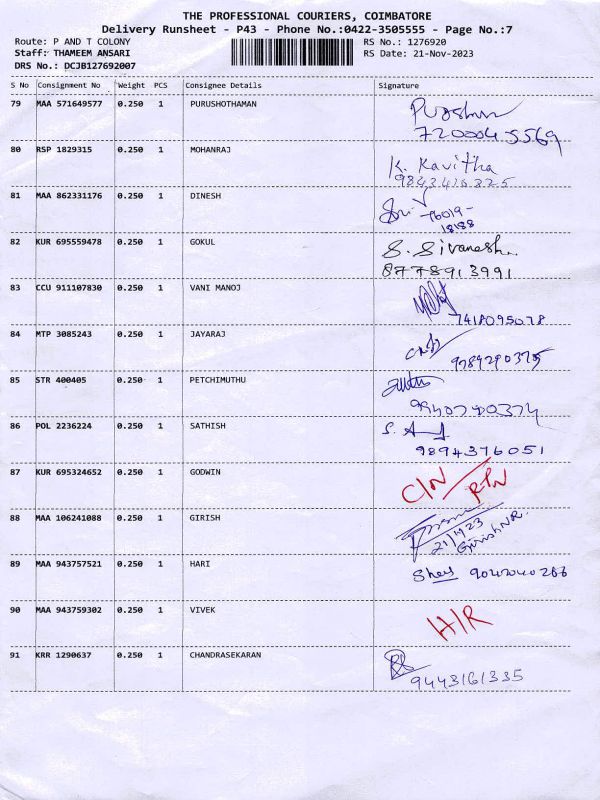 THE PROFESSIONAL COURIERS, COIMBATORE
Delivery Runsheet - P43 - Phone No.:0422-3505555 - Page No.:7
Route: P AND T COLONY
RS No.: 1276920
Staff: THAMEEM ANSARI
RS Date: 21-Nov-2023
DRS No.: DCJB127692007
S No Consignment No Weight PCS Consignee Details Signature
79 MAA 571649577 0.250 1 PURUSHOTHAMAN
80 RSP 1829315 0.250 1 MOHANRAJ K. Kavitha
81 MAA 862331176 0.250 1 DINESH
76019-
18188
82 KUR 695559478 0.250 1 GOKUL S. Sivanesh.
8778913991
83 CCU 911107830 0.250 1 VANI MANOJ
7418095078
84 MTP 3085243 0.250 1 JAYARAJ
9789290375
85 STR 400405 0.250 1 PETCHIMUTHU
9940740374
86 POL 2236224 0.250 1 SATHISH
9894376051
87 KUR 695324652 0.250 1 GODWIN C/N
88 MAA 106241088 0.250 1 GIRISH
21/11/23
Girish N.R.
89 MAA 943757521 0.250 1 HARI
90 MAA 943759302 0.250 1 VIVEK H/R
91 KRR 1290637 0.250 1 CHANDRASEKARAN
9443161335